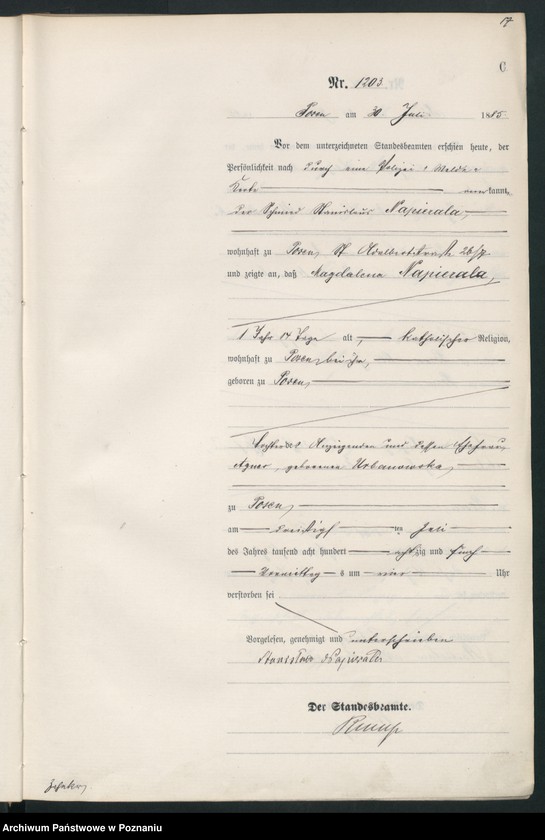 17
C
Nr. 1203.
Posen am 30. Juli 1885
Vor dem unterzeichneten Standesbeamten erschien heute, der
Persönlichkeit nach durch eine Polizei-Melde-
Karte kannt,
der Schmied Stanislaus Napierala,
wohnhaft zu Posen, St Adalbertstraße 26/7.
und zeigte an, daß Magdalena Napierala,
1 Jahr 14 Tage alt, katholischer Religion,
wohnhaft zu Posen, bei ihm,
geboren zu Posen,
Tochter des Anzeigenden und dessen Ehefrau
Agnes, geborenen Urbanowska,
zu Posen,
am dreißigsten Juli
des Jahres tausend acht hundert achtzig und fünf
Vormittags um Uhr
verstorben sei
Vorgelesen, genehmigt und unterschrieben
Stanisław Napierała
Der Standesbeamte.
Archiwum Państwowe w Poznaniu